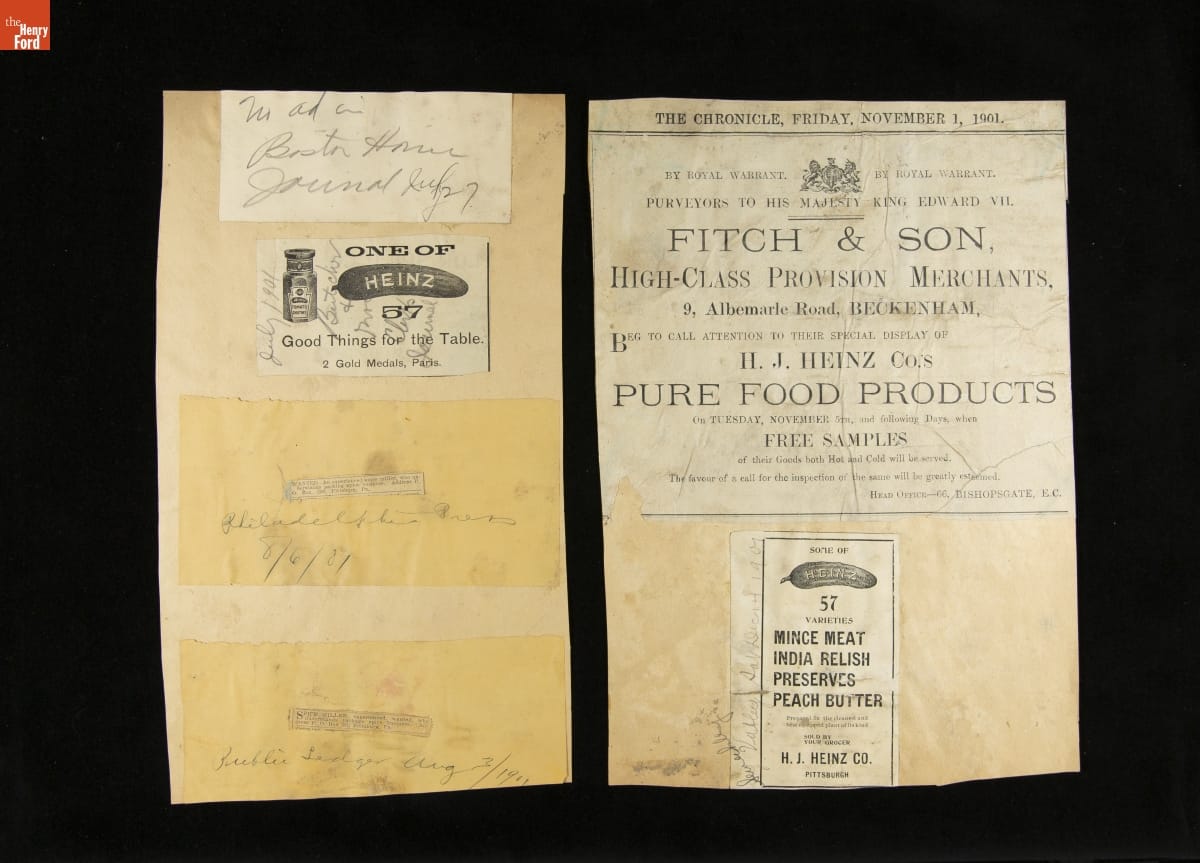 the
Henry
Ford
ad in
Boston Home
Journal July 27
ONE OF
HEINZ
57
Good Things for the Table.
2 Gold Medals, Paris.
July 1901
Butcher
Journal
WANTED
Philadelphia Press
8/6/01
SPICE MILLER, experienced, wanted,
Public Ledger Aug
THE CHRONICLE, FRIDAY, NOVEMBER 1, 1901.
BY ROYAL WARRANT. BY ROYAL WARRANT.
PURVEYORS TO HIS MAJESTY KING EDWARD VII.
FITCH & SON,
HIGH-CLASS PROVISION MERCHANTS,
9, Albemarle Road, BECKENHAM,
BEG TO CALL ATTENTION TO THEIR SPECIAL DISPLAY OF
H. J. HEINZ Co.'s
PURE FOOD PRODUCTS
On TUESDAY, NOVEMBER 5TH, and following Days, when
FREE SAMPLES
of their Goods both Hot and Cold will be served.
The favour of a call for the inspection of the same will be greatly esteemed.
HEAD OFFICE—66, BISHOPSGATE, E.C.
SOME OF
HEINZ
57
VARIETIES
MINCE MEAT
INDIA RELISH
PRESERVES
PEACH BUTTER
Prepared in the cleaned and
best equipped plant of its kind
SOLD BY
YOUR GROCER
H. J. HEINZ CO.
PITTSBURGH
Valley
Dec 14 1901